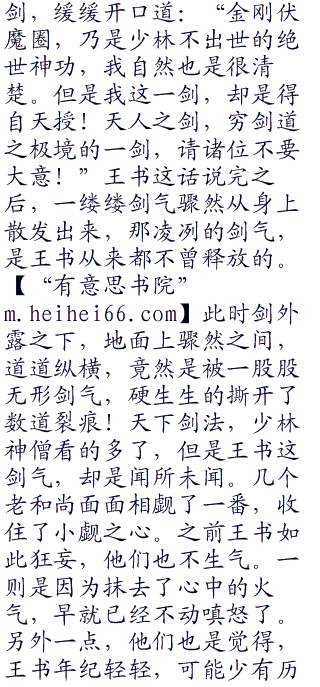 剑，缓缓开口道：“金刚伏
魔圈，乃是少林不出世的绝
世神功，我自然也是很清
楚。但是我这一剑，却是得
自天授！天人之剑，穷剑道
之极境的一剑，请诸位不要
大意！”王书这话说完之
后，一缕缕剑气骤然从身上
散发出来，那凌冽的剑气，
是王书从来都不曾释放的。
【“有意思书院”
m.heihei66.com】此时剑外
露之下，地面上骤然之间，
道道纵横，竟然是被一股股
无形剑气，硬生生的撕开了
数道裂痕！天下剑法，少林
神僧看的多了，但是王书这
剑气，却是闻所未闻。几个
老和尚面面相觑了一番，收
住了小觑之心。之前王书如
此狂妄，他们也不生气。一
则是因为抹去了心中的火
气，早就已经不动嗔怒了。
另外一点，他们也是觉得，
王书年纪轻轻，可能少有历